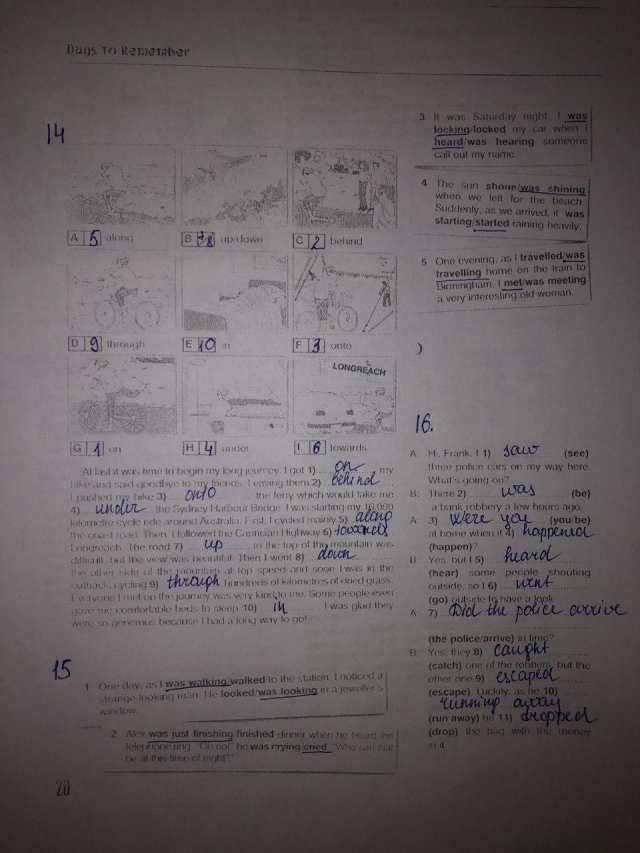 Days to Remember
14
A 5 along
B 7/8 up/down
C 2 behind
D 9 through
E 10 in
F 3 onto
LONGREACH
G 1 on
H 4 under
I 6 towards
At last it was time to begin my long journey. I got 1) on my
bike and said goodbye to my friends. Leaving them 2) behind
I pushed my bike 3) onto the ferry which would take me
4) under the Sydney Harbour Bridge. I was starting my 16,000
kilometre cycle ride around Australia. First, I cycled mainly 5) along
the coast road. Then, I followed the Capricorn Highway 6) towards
Longreach. The road 7) up to the top of the mountain was
difficult, but the view was beautiful. Then I went 8) down
the other side of the mountain at top speed and soon I was in the
outback, cycling 9) through hundreds of kilometres of dried grass.
Everyone I met on the journey was very kind to me. Some people even
gave me comfortable beds to sleep 10) in I was glad they
were so generous because I had a long way to go!
15
1 One day, as I was walking/walked to the station, I noticed a
strange-looking man. He looked/was looking in a jeweller's
window.
2 Alex was just finishing/finished dinner when he heard the
telephone ring. "Oh no!" he was crying/cried. "Who can that
be at this time of night?"
20
3 It was Saturday night. I was
locking/locked my car when I
heard/was hearing someone
call out my name.
4 The sun shone/was shining
when we left for the beach.
Suddenly, as we arrived, it was
starting/started raining heavily.
5 One evening, as I travelled/was
travelling home on the train to
Birmingham, I met/was meeting
a very interesting old woman.
)
16.
A: Hi, Frank. I 1) saw (see)
three police cars on my way here.
What's going on?
B: There 2) was (be)
a bank robbery a few hours ago.
A: 3) Were you (you/be)
at home when it 4) happened
(happen)?
B: Yes, but I 5) heard
(hear) some people shouting
outside, so I 6) went
(go) outside to have a look.
A: 7) Did the police arrive
(the police/arrive) in time?
B: Yes, they 8) caught
(catch) one of the robbers, but the
other one 9) escaped
(escape). Luckily, as he 10)
running away
(run away) he 11) dropped
(drop) the bag with the money
in it.